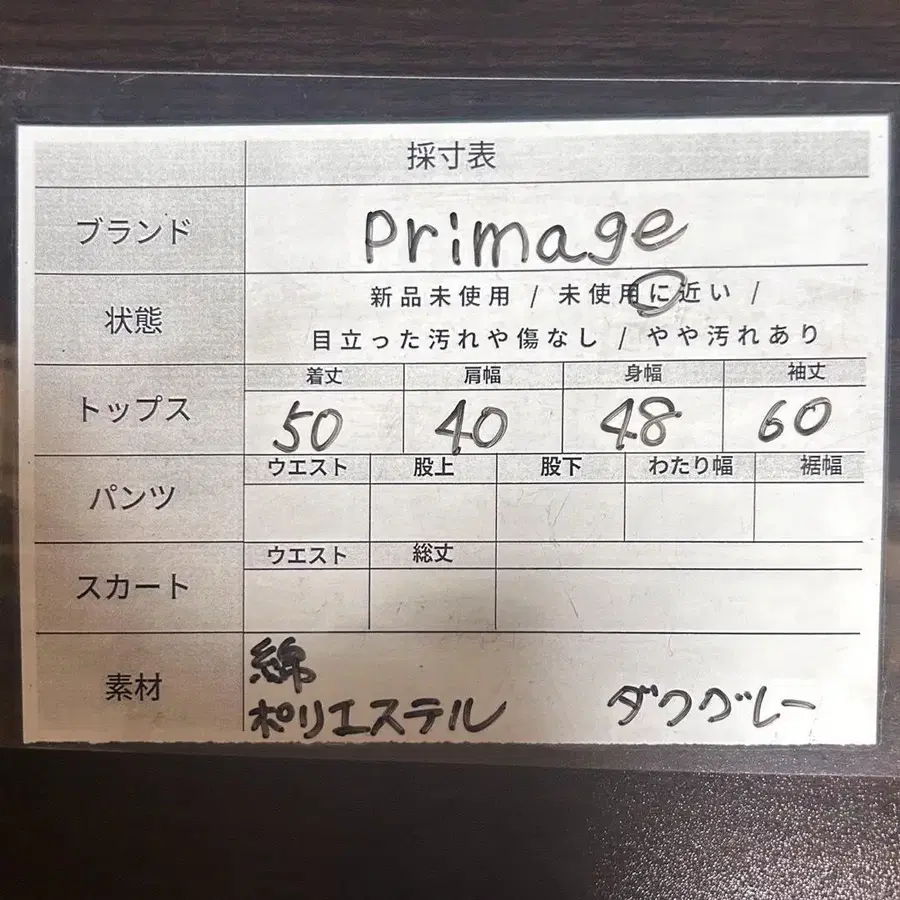 採寸表
ブランド
Primage
状態
新品未使用 / 未使用に近い /
目立った汚れや傷なし / やや汚れあり
トップス
着丈 肩幅 身幅 袖丈
50 40 48 60
パンツ
ウエスト 股上 股下 わたり幅 裾幅
スカート
ウエスト 総丈
素材
綿
ポリエステル
ダクグレー